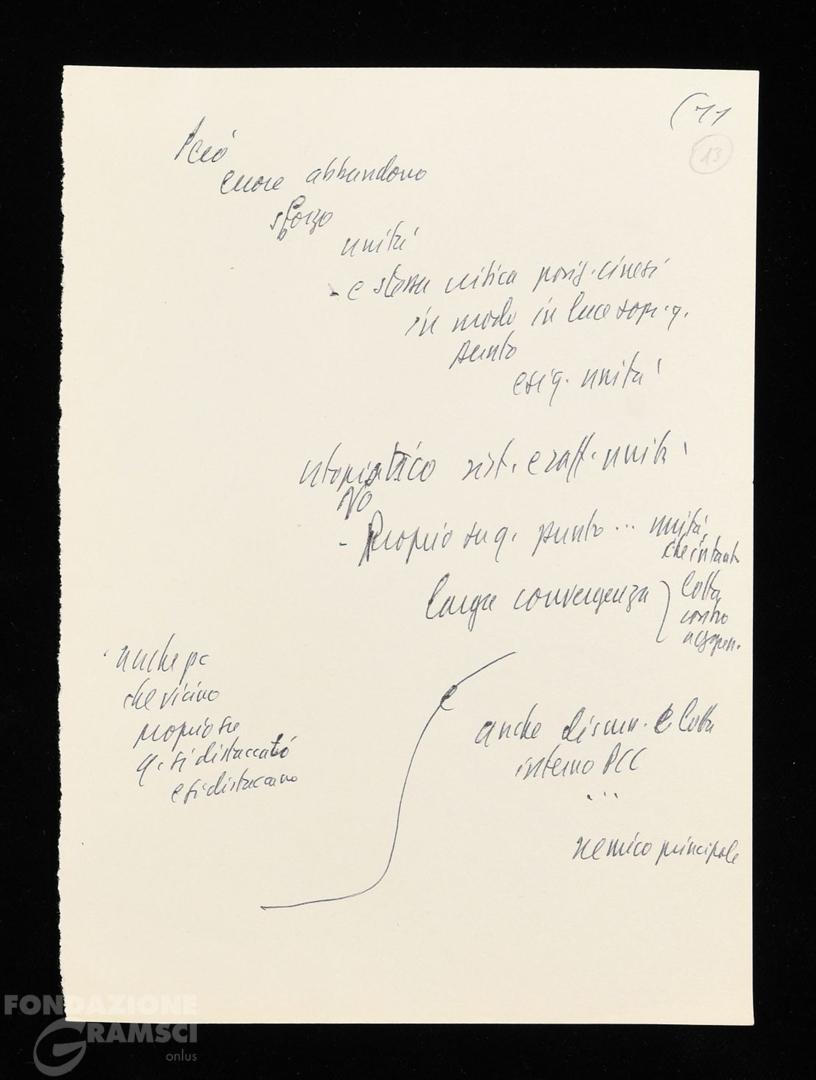 (11
13
Perciò
errore abbandono
sforzo
unità
- e stessa critica posiz. cinesi
in modo in luce sop. q.
punto
esig. unità
utopistico rist. e raff. unità
No
- Proprio su q. punto ... unità,
che intanto
larga convergenza
lotta
contro
aggress.
anche pc
che vicino
proprio su
q. si distaccati
e si distaccano
anche discus. e lotta
interno PCC
...
nemico principale
FONDAZIONE
GRAMSCI
onlus